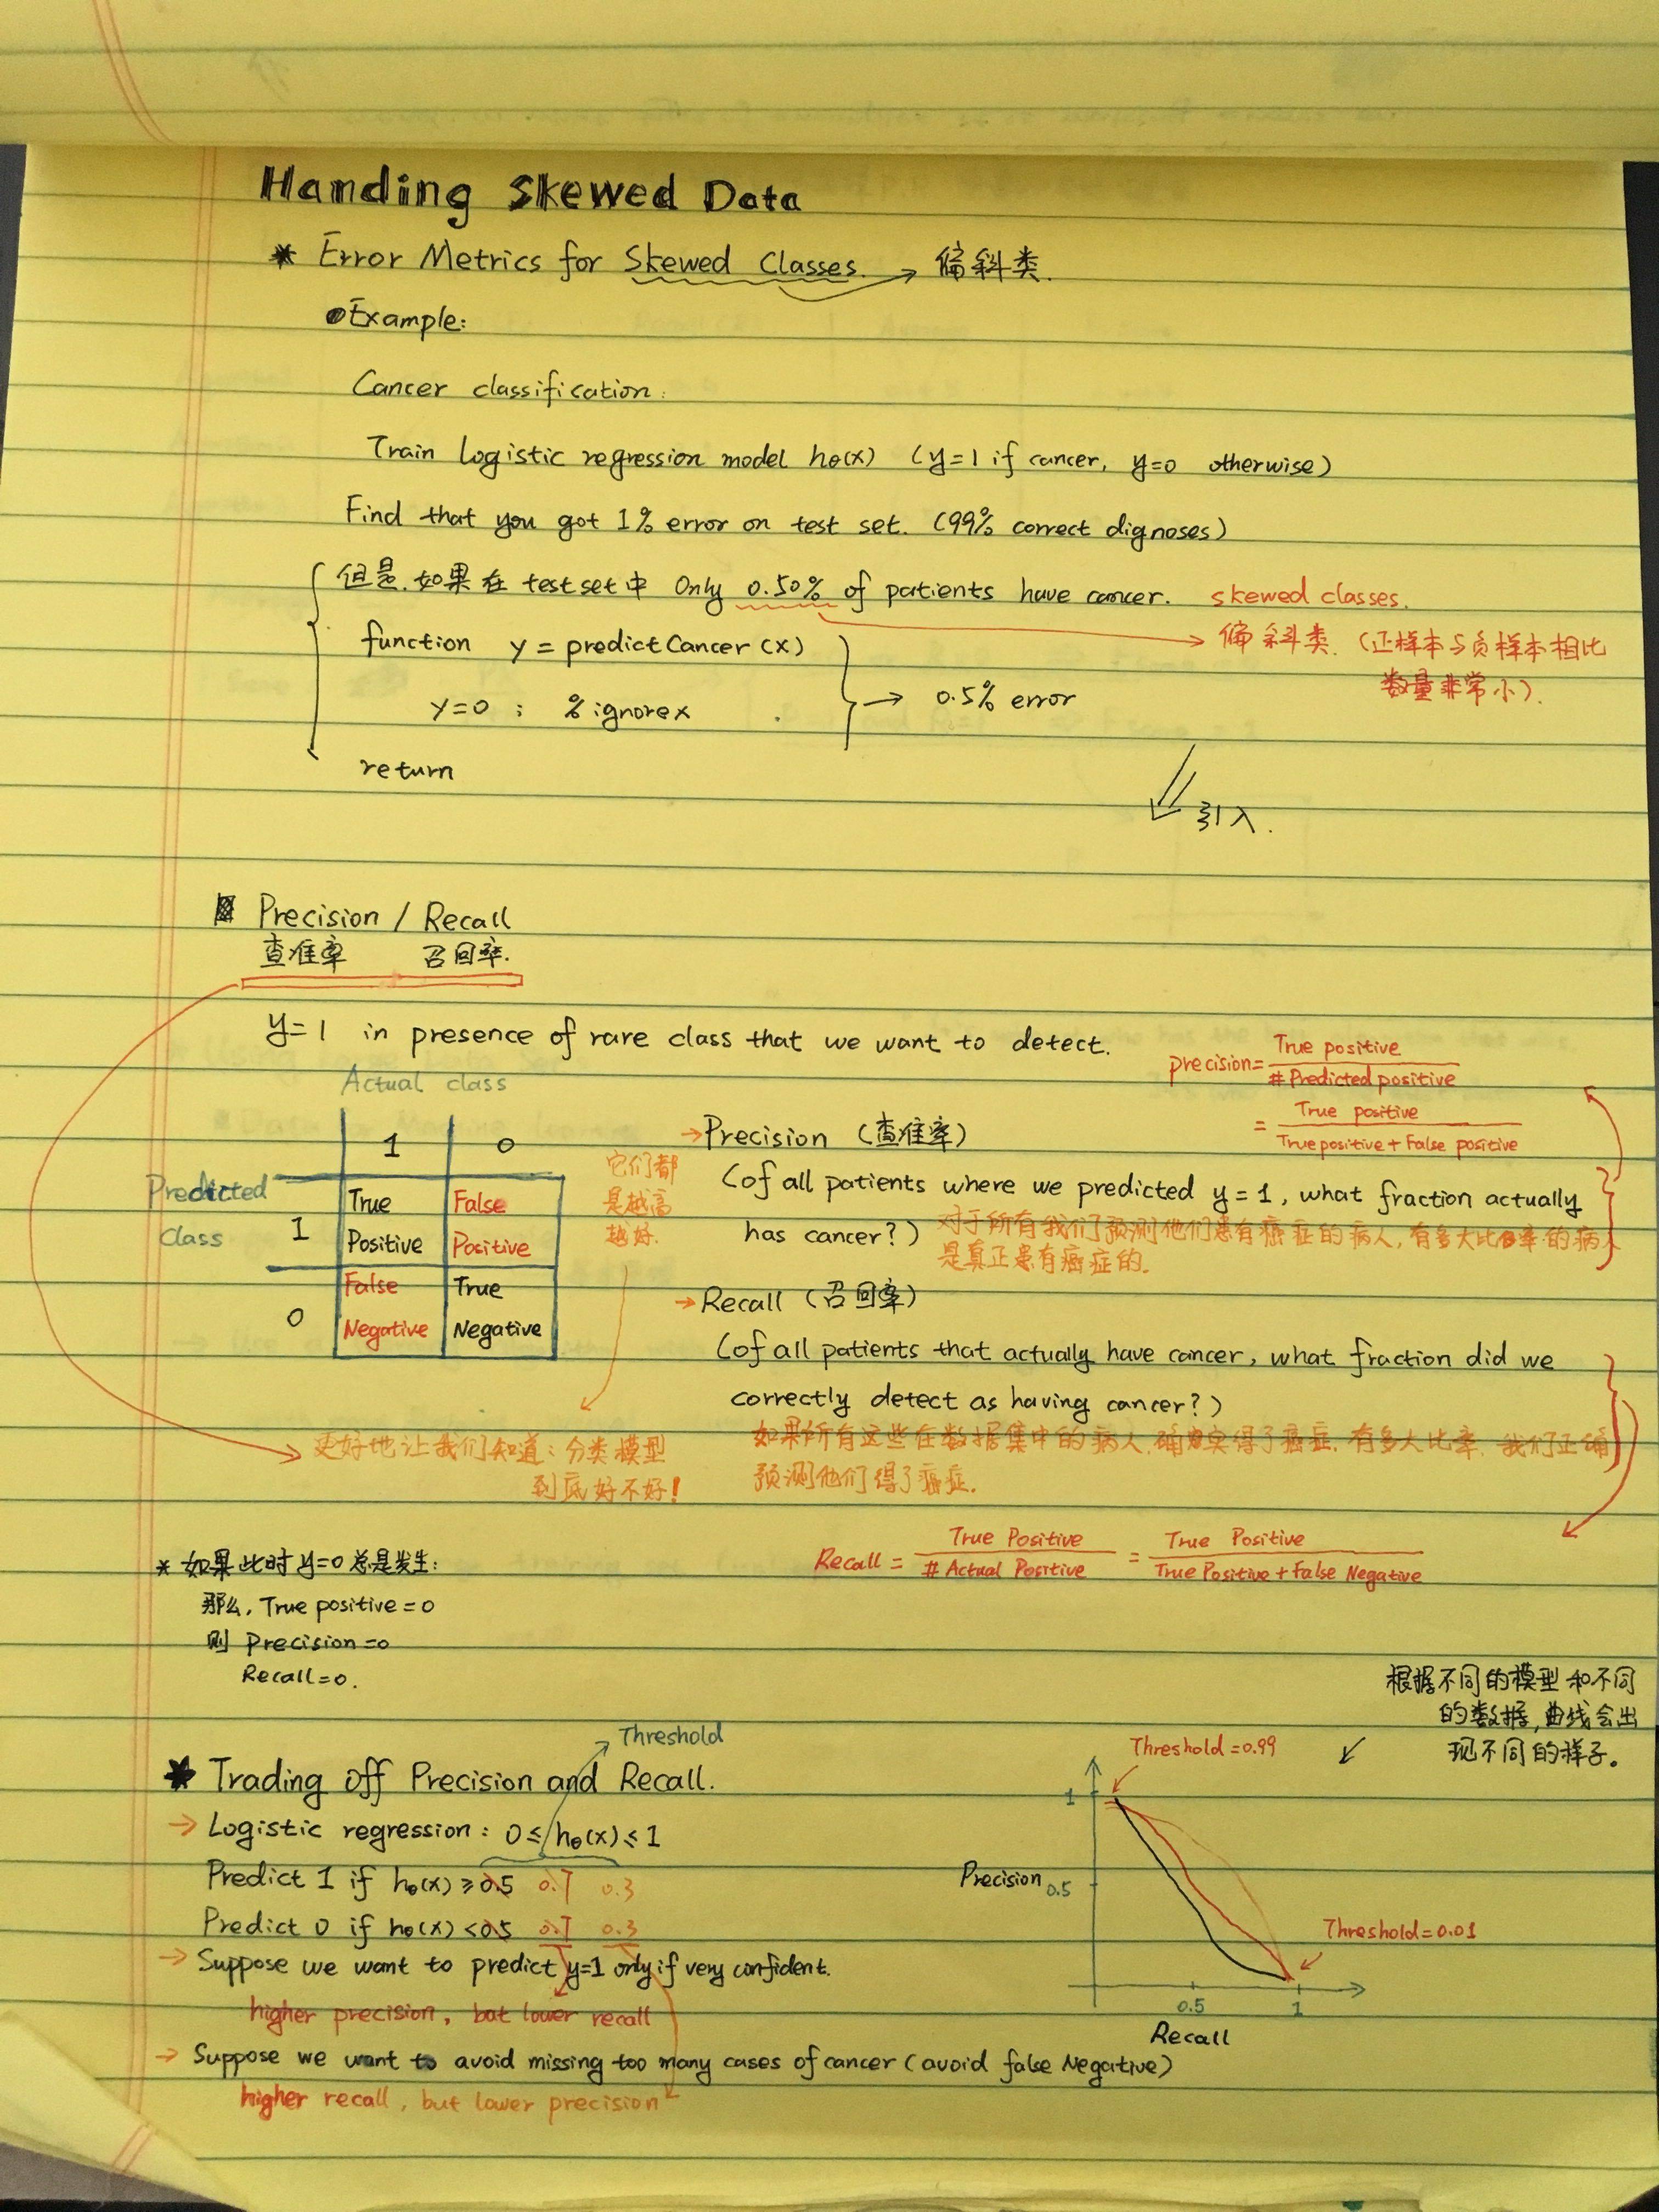 Handing Skewed Data
* Error Metrics for Skewed Classes. → 偏斜类.
Example:
Cancer classification:
Train logistic regression model hθ(x) (y=1 if cancer, y=0 otherwise)
Find that you got 1% error on test set. (99% correct dignoses)
但是.如果在 test set 中 Only 0.50% of patients have cancer. skewed classes.
→ 偏斜类. (正样本与负样本相比
数量非常小).
function y = predictCancer (x)
y=0 ; % ignore x
→ 0.5% error
return
引入.
Precision / Recall
查准率 召回率.
y=1 in presence of rare class that we want to detect.
precision= True positive / # Predicted positive
= True positive / True positive + False positive
Actual class
1 0
Predicted
class
1
True Positive
False Positive
0
False Negative
True Negative
它们都
是越高
越好.
→ Precision (查准率)
(of all patients where we predicted y=1, what fraction actually
has cancer?) 对于所有我们预测他们患有癌症的病人, 有多大比率的病人
是真正患有癌症的.
→ Recall (召回率)
(of all patients that actually have cancer, what fraction did we
correctly detect as having cancer?)
如果所有这些在数据集中的病人.确实得了癌症. 有多大比率. 我们正确
预测他们得了癌症.
→ 更好地让我们知道: 分类模型
到底好不好!
Recall = True Positive / # Actual Positive = True Positive / True Positive + False Negative
* 如果此时 y=0 总是发生:
那么, True positive = 0
则 Precision =0
Recall=0.
根据不同的模型和不同
的数据,曲线会出
现不同的样子。
Threshold
* Trading off Precision and Recall.
→ Logistic regression: 0 ≤ hθ(x) ≤ 1
Predict 1 if hθ(x) ≥ 0.5 0.7 0.3
Predict 0 if hθ(x) < 0.5 0.7 0.3
→ Suppose we want to predict y=1 only if very confident.
higher precision, but lower recall
→ Suppose we want to avoid missing too many cases of cancer (avoid false Negative)
higher recall, but lower precision
Threshold = 0.99
1
Precision 0.5
Threshold = 0.01
0.5 1
Recall